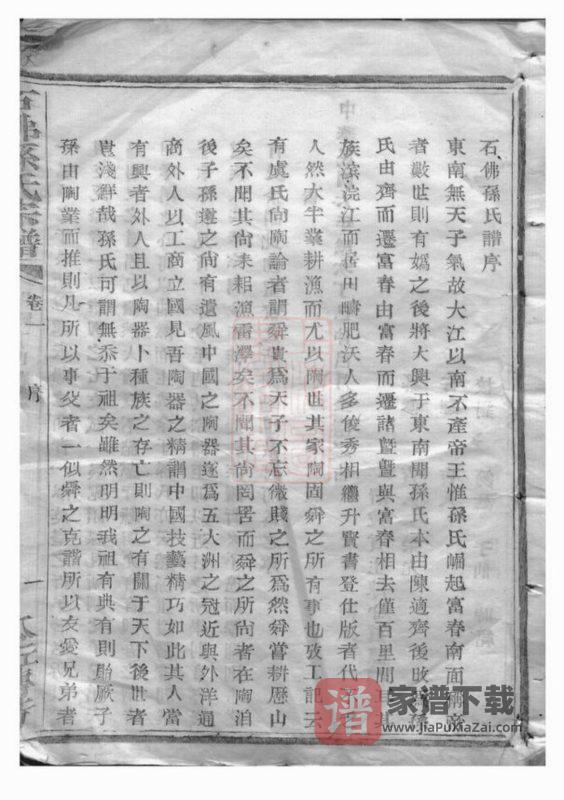 石佛孫氏譜序
東南無天子氣故大江以南不產帝王惟孫氏崛起富春南面稱帝
者數世則有媯之後將大興于東南聞孫氏本由陳適齊後改孫
氏由齊而遷富春由富春而遷諸曁曁與富春相去僅百里間其
族濱浣江而居田疇肥沃人多俊秀相繼升賢書登仕版者代不
人然大半業耕漁而尤以陶世其家陶固舜之所有事也攷工記云
有虞氏尚陶論者謂舜貴爲天子不忘微賤之所爲然舜嘗耕歷山
矣不聞其尚耒耜漁雷澤矣不聞其尚罔罟而舜之所尚者在陶洎
後子孫遵之尚有遺風中國之陶器遂爲五大洲之冠近與外洋通
商外人以工商立國見吾陶器之精謂中國技藝精巧如此其人當
有興者外人且以陶器卜種族之存亡則陶之有關于天下後世者
豈淺鮮哉孫氏可謂無忝于祖矣雖然明明我祖有典有則貽厥子
孫由陶業而推則凡所以事父者一似舜之克諧所以友愛兄弟者
孫氏宗譜
卷一
序
一
家谱下载
www.jiaPuXiaZai.com
谱